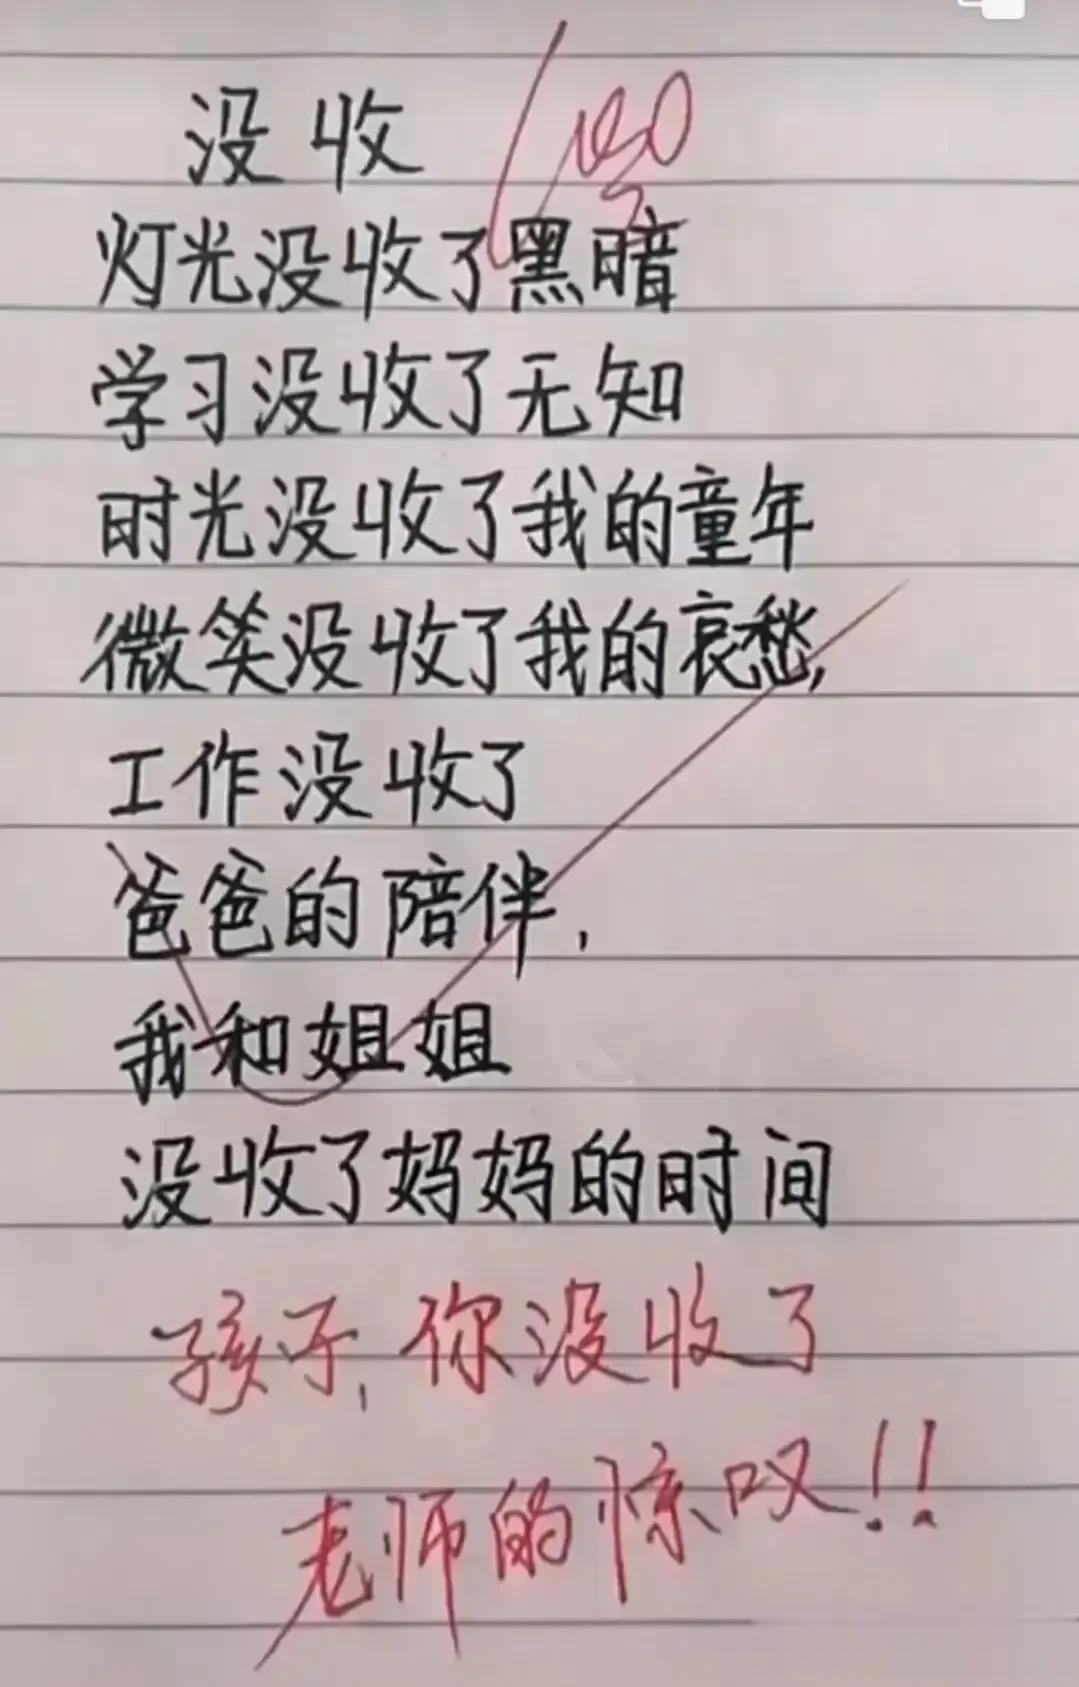 没收
灯光没收了黑暗
学习没收了无知
时光没收了我的童年
微笑没收了我的哀愁,
工作没收了
爸爸的陪伴,
我和姐姐
没收了妈妈的时间
孩子,你没收了
老师的惊叹!!